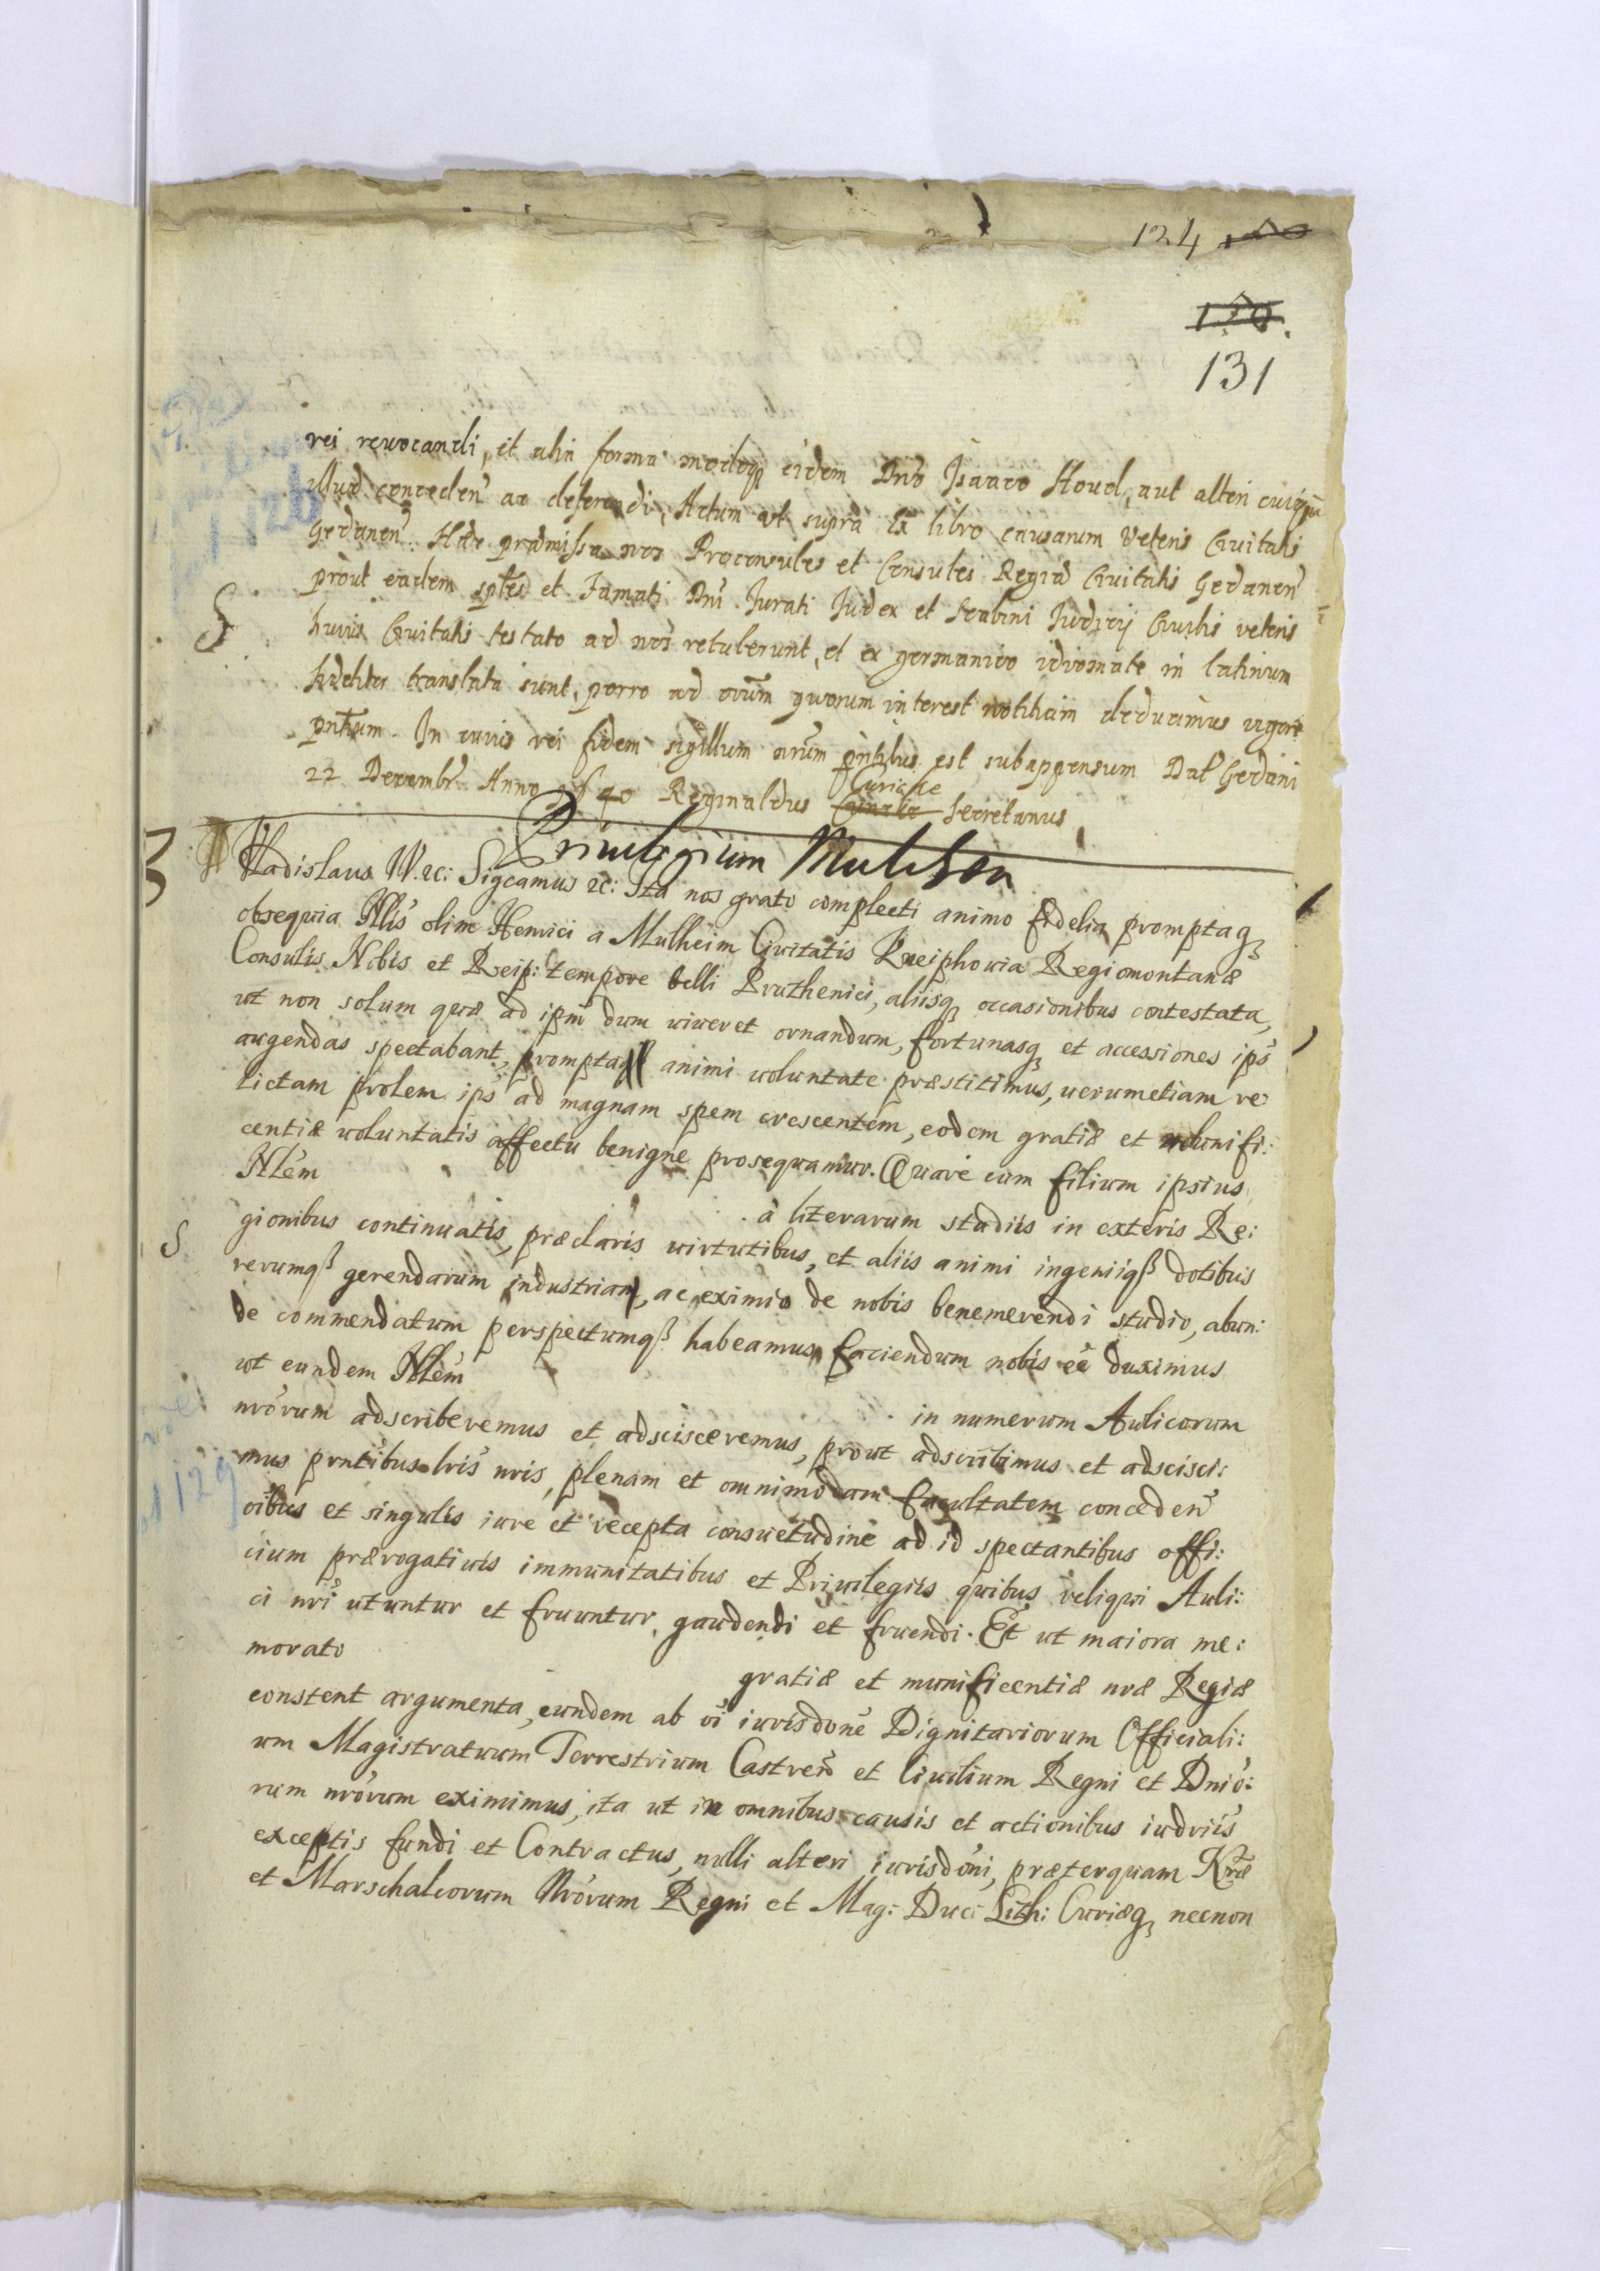 124
131
rei revocandi, et alia forma modoq eidem Dno Isaaco Houel, aut alteri cuiq
illud conceden ac deferendi, Actum ut supra Ex libro causarum Veteris Civitatis
Gedanen. Hæc præmissa nos Proconsules et Consules Regiæ Civitatis Gedanen
prout eadem sptles et Famati Dni Iurati Iudex et Scabini Iudicij Civilis veteris
huius Civitatis testato ad nos retulerunt, et ex germanico idiomate in latinum
fideliter translata sunt, porro ad oium quorum interest notitiam deducimus vigore
pntium. In cuius rei fidem sigillum nrum pntibus est subappensum Dat Gedani
22 Decembr Anno 1640 Reginaldus Curiche Secretarius
Privilegium Mulhem
3
Vladislaus IV. ec: Sigcamus ec: Ita nos grato complecti animo fidelia promptaq
obsequia Nlis olim Henrici a Mulheim Civitatis Kneiphovia Regiomontanæ
Consulis Nobis et Reip: tempore belli Pruthenici, aliisq occasionibus contestata,
ut non solum quæ ad ipm dum viveret ornandum, fortunasq et accessiones ips
augendas spectabant, prompta animi voluntate præstitimus, verumetiam re:
lictam prolem ips ad magnam spem crescentem, eodem gratiæ et munifi:
centiæ voluntatis affectu benigne prosequamur. Quare cum filium ipsius
Nlem
à literarum studiis in exteris Re:
gionibus continuatis, præclaris virtutibus, et aliis animi ingeniiq dotibus
rerumq gerendarum industria, ac eximio de nobis benemerendi studio, abun:
de commendatum perspectumq habeamus, faciendum nobis ee duximus
ut eundem Nlem
in numerum Aulicorum
nrorum adscriberemus et adscisceremus, prout adscribimus et adscisci:
mus prntibus lris nris, plenam et omnimodam facultatem conceden
oibus et singulis iure et recepta consuetudine ad id spectantibus offi:
cium prærogativis immunitatibus et Privilegiis quibus reliqui Auli:
ci nri utuntur et fruuntur, gaudendi et fruendi. Et ut maiora me:
morato
gratiæ et munificentiæ nræ Regiæ
constent argumenta, eundem ab oi iurisdone Dignitariorum Officiali:
um Magistratuum Terrestrium Castren et Civilium Regni et Dnio:
rum nrorum eximimus, ita ut in omnibus causis et actionibus iudriis
exceptis fundi et Contractus, nulli alteri iurisdoni, præterquam Nræ
et Marschalcorum Nrorum Regni et Mag: Duc: Lith: Curiæq necnon